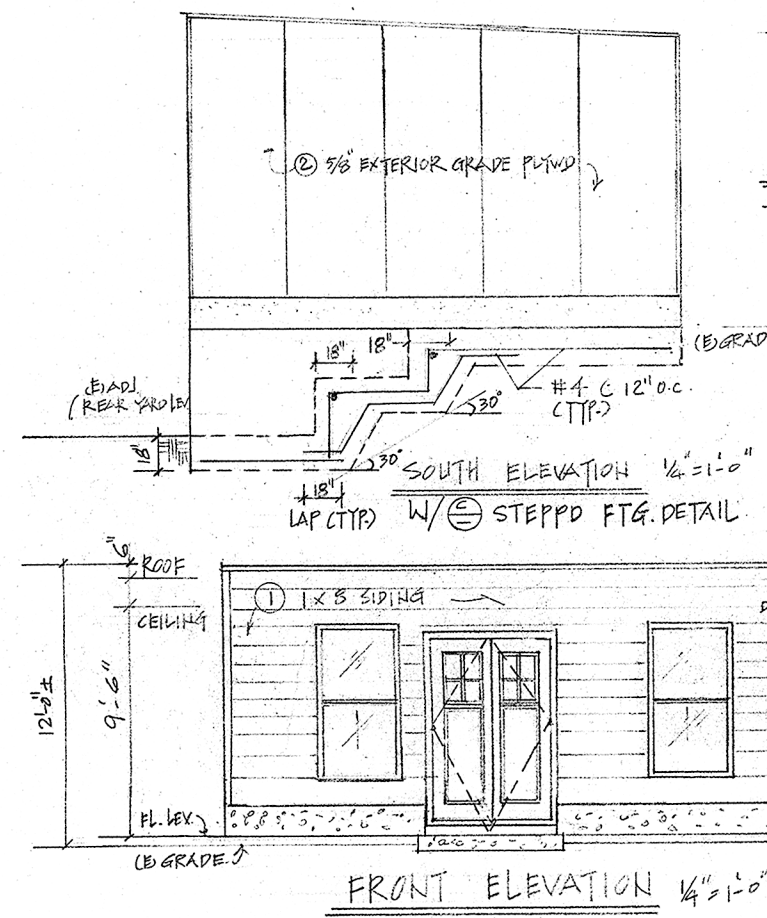 ② 5/8" EXTERIOR GRADE PLYWD
18"
18"
(E) GRAD
(E) ADJ.
(REAR YARD LEV
#4 @ 12" O.C.
(TYP.)
30°
18"
30°
18"
LAP (TYP.)
SOUTH ELEVATION 1/4"=1'-0"
W/ STEPPD FTG. DETAIL
6"
ROOF
① 1 X 8 SIDING
CEILING
12'-0"±
9'-6"
FL. LEV.
(E) GRADE.
FRONT ELEVATION 1/4"=1'-0"